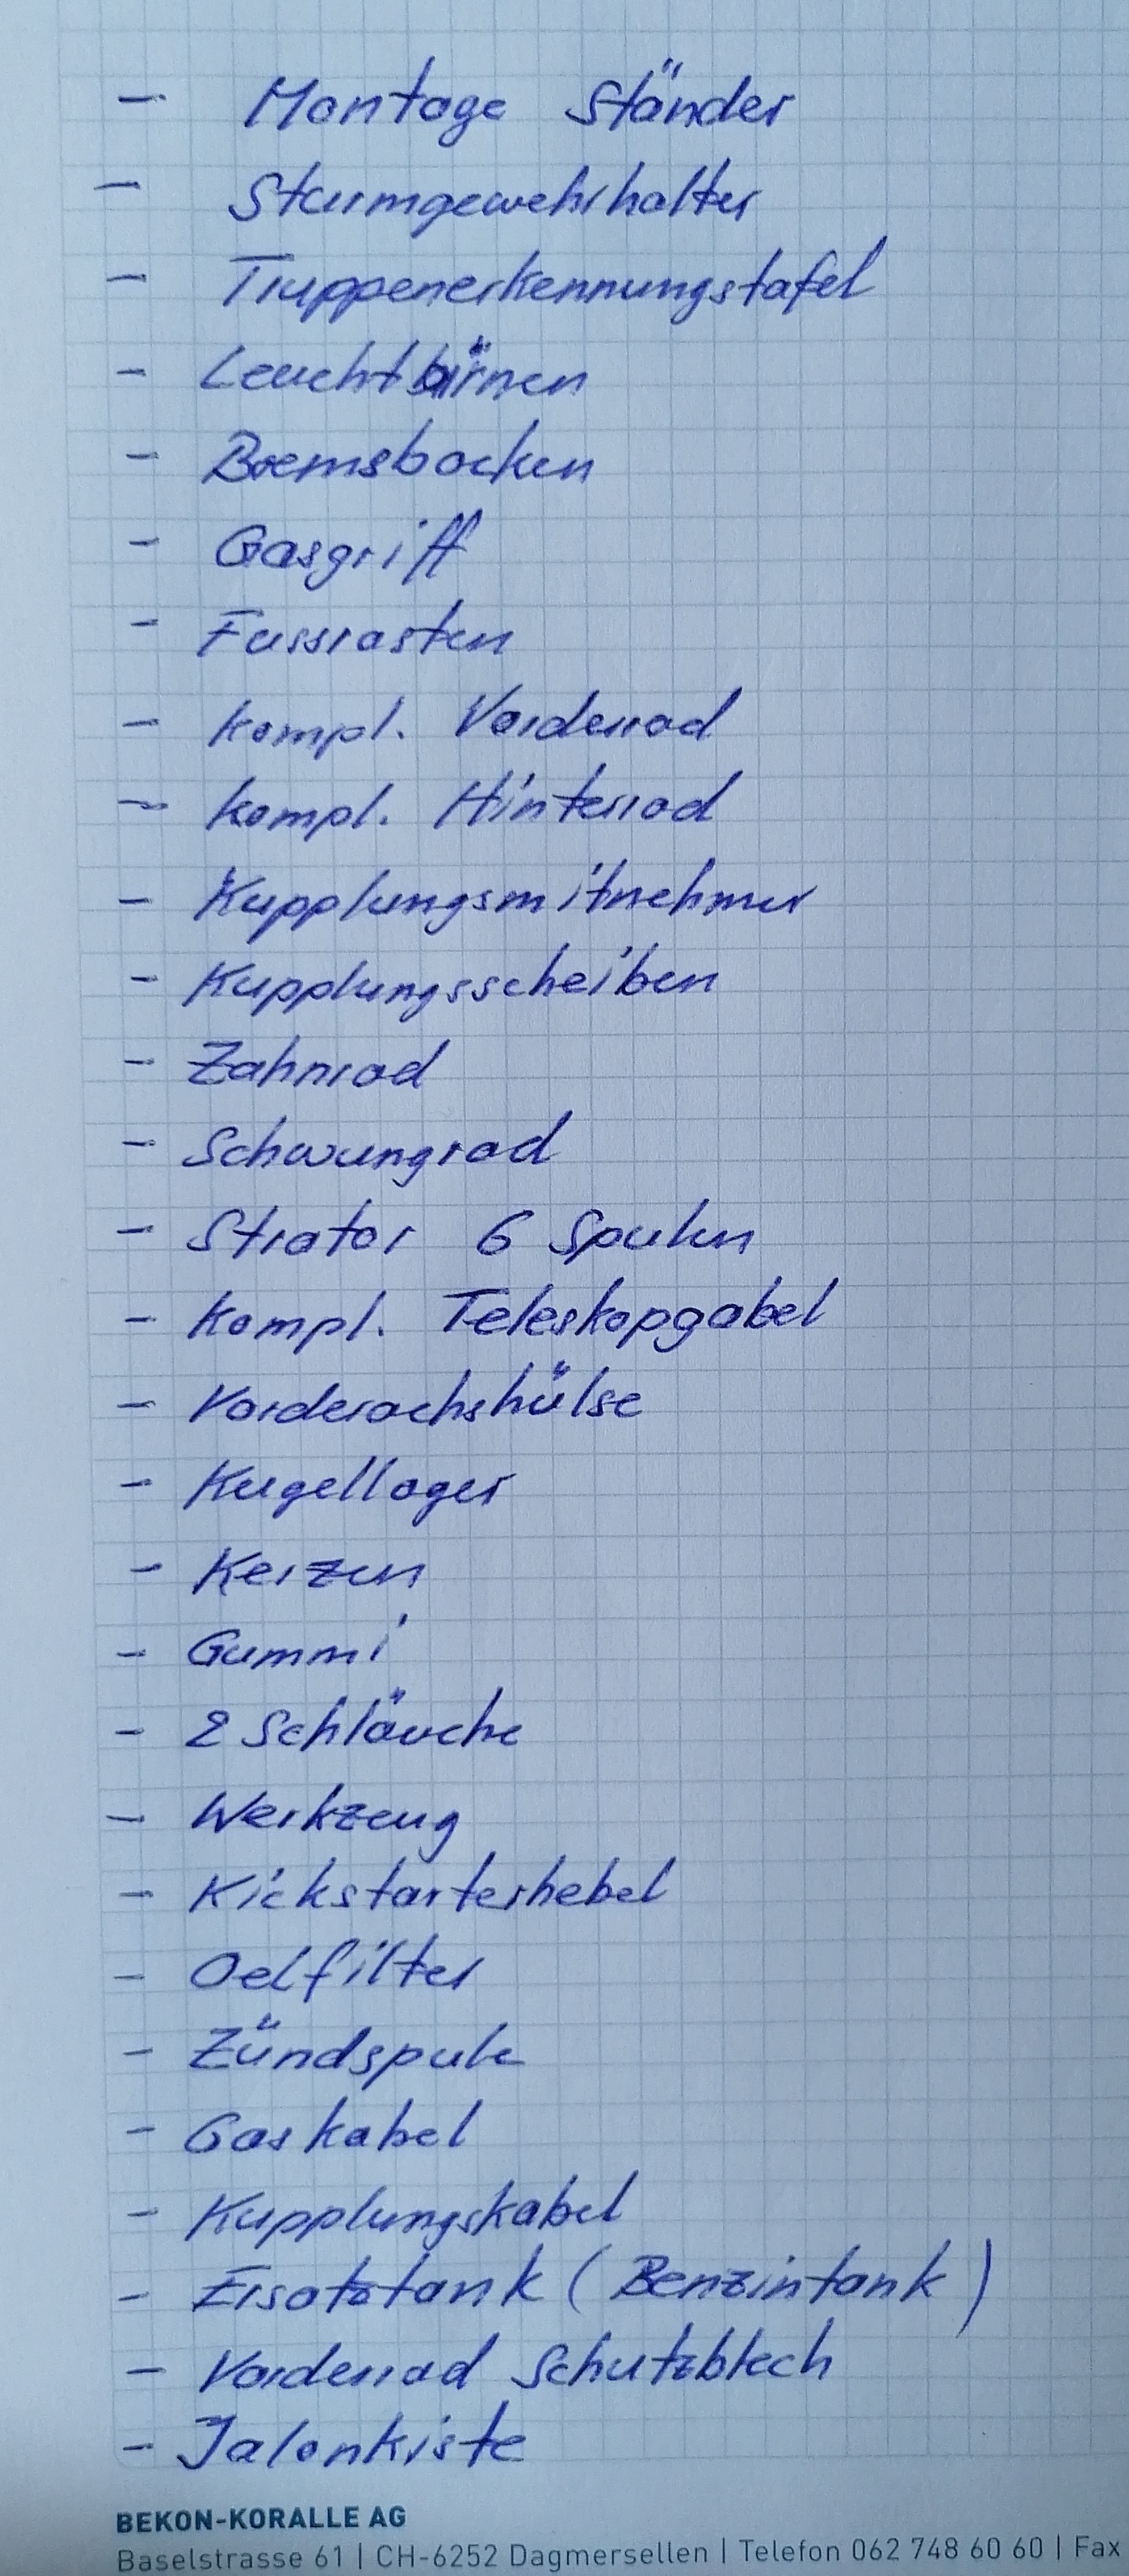 - Montage Ständer
- Sturmgewehrhalter
- Truppenerkennungstafel
- Leuchtbirnen
- Bremsbacken
- Gasgriff
- Fussrasten
- kompl. Vorderrad
- kompl. Hinterrad
- Kupplungsmitnehmer
- Kupplungsscheiben
- Zahnrad
- Schwungrad
- Strator 6 Spulen
- Kompl. Teleskopgabel
- Vorderachshülse
- Kugellager
- Kerzen
- Gummi
- 2 Schläuche
- Werkzeug
- Kickstarterhebel
- Oelfilter
- Zündspule
- Gaskabel
- Kupplungskabel
- Ersatztank (Benzintank)
- Vorderrad Schutzblech
- Jalonkiste
BEKON-KORALLE AG
Baselstrasse 61 | CH-6252 Dagmersellen | Telefon 062 748 60 60 | Fax